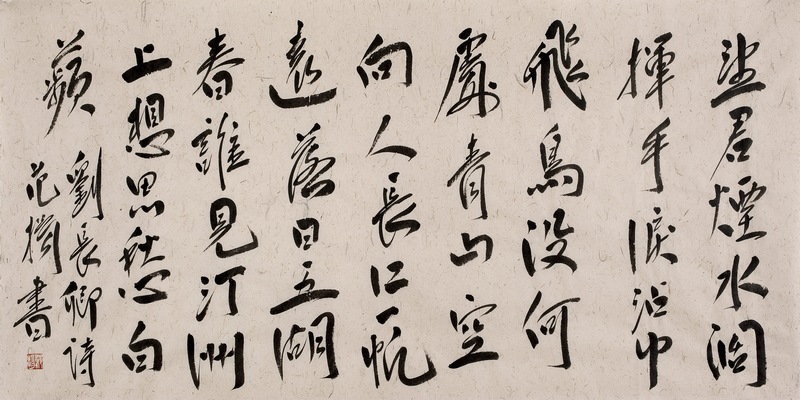 望君煙水闊
揮手淚沾巾
飛鳥沒何
處青山空
向人長江一帆
遠落日五湖
春誰見汀洲
上想思愁白
蘋
劉長卿詩
范書